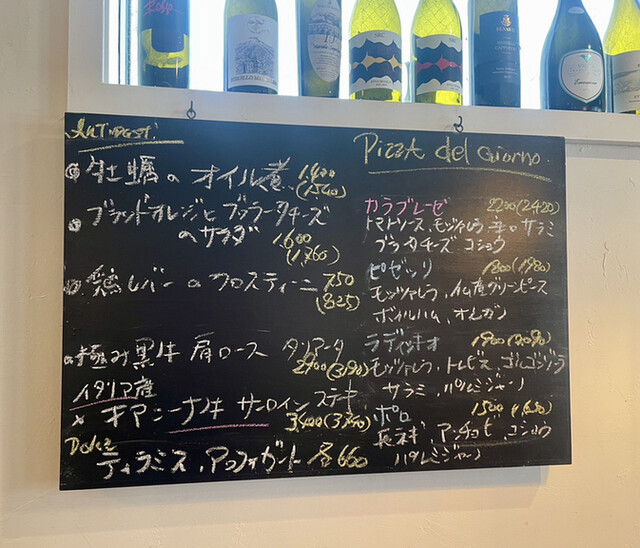 ANTIPASTI
牡蠣のオイル煮 1,400
(1,540)
ブラッドオレンジとブッラータチーズ
のサラダ 1,600
(1,760)
鶏レバーのクロスティーニ 750
(825)
極み黒牛 肩ロース タリアータ
2900 (3,190)
イタリア産
キアニーナ牛 サーロインステーキ
3,400 (3,740)
Dolce
ティラミス、アフォガート 各660
Pizza del Giorno
カラブレーゼ 2200 (2420)
トマトソース、モッツァレラ、辛口サラミ
ブラータチーズ コショウ
ピゼッリ 1800 (1980)
モッツァレラ、仏産グリーンピース
ボイルハム、オレガノ
ラディッキオ 1900 (2,090)
モッツァレラ、トレビス、ゴルゴンゾーラ
サラミ、パルミジャーノ
ポロ 1500 (1,650)
長ネギ、アンチョビ、コショウ
パルミジャーノ